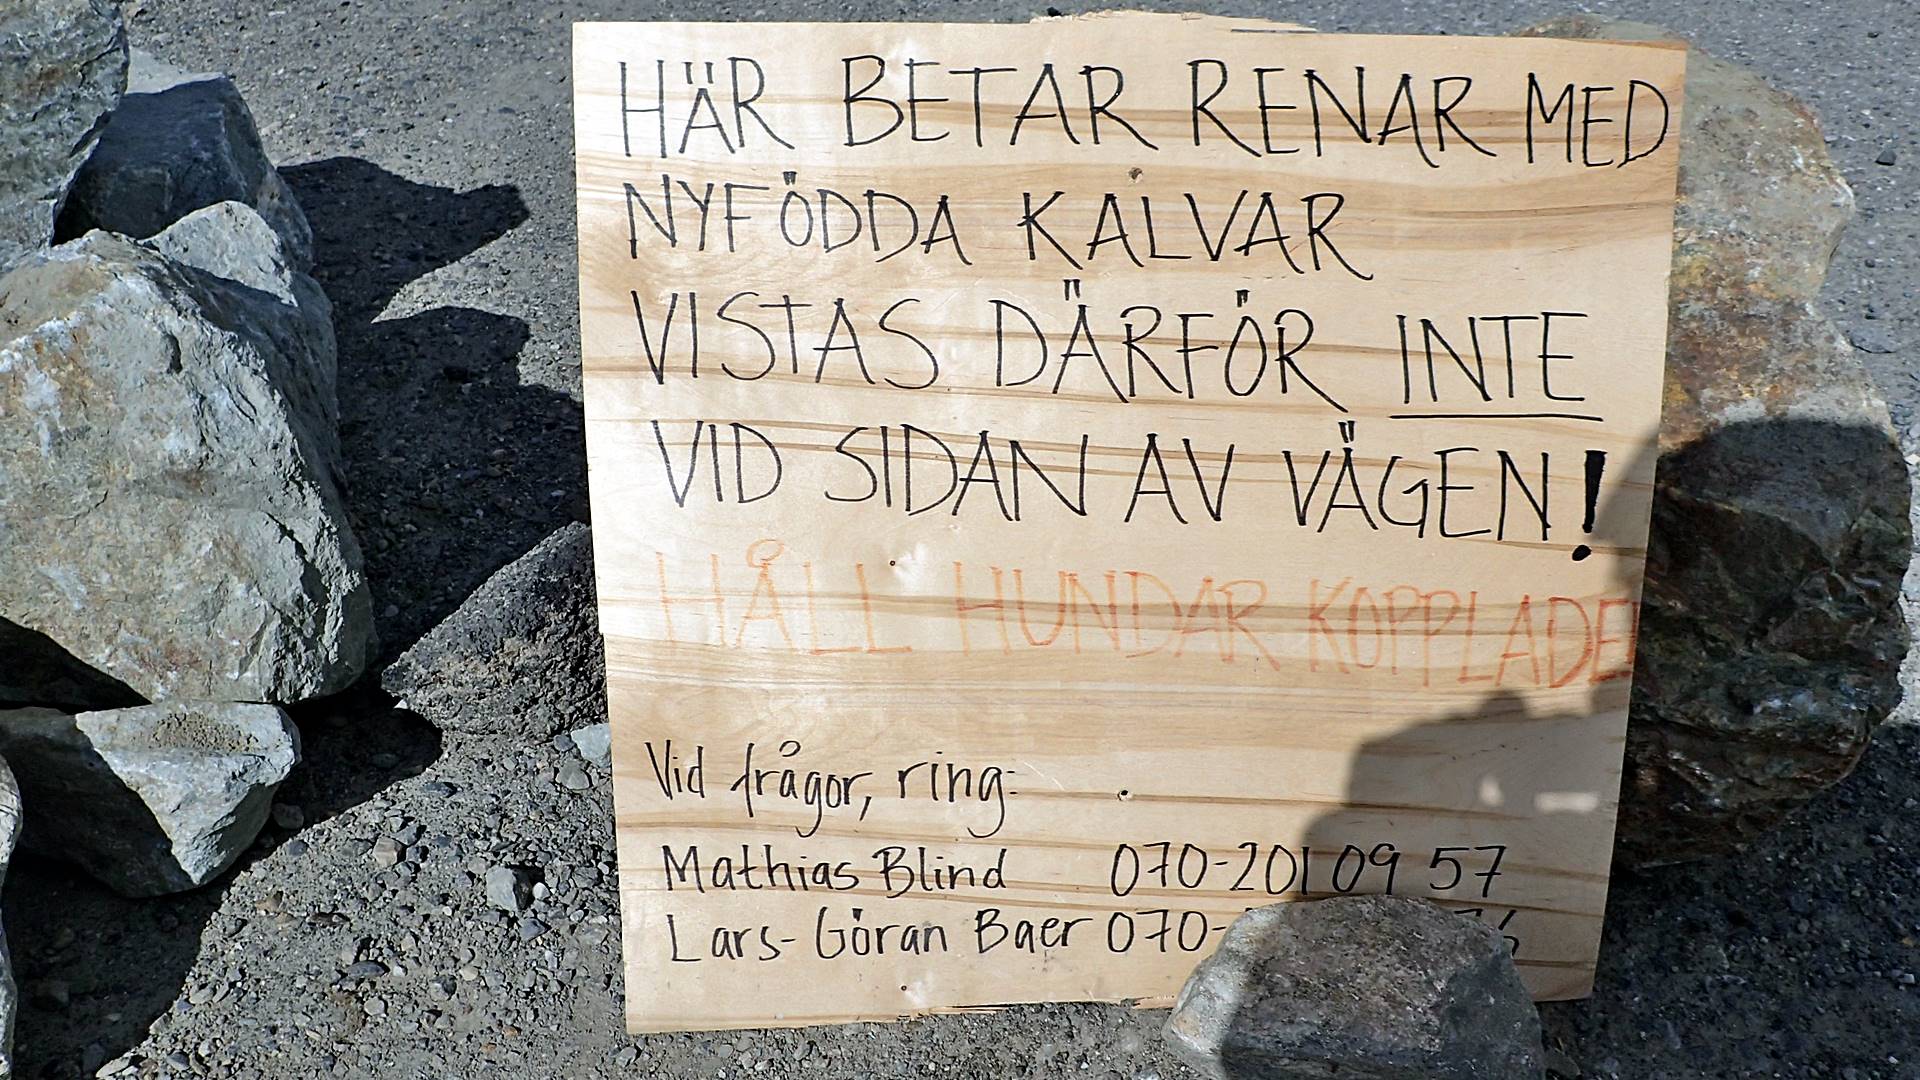 HÄR BETAR RENAR MED
NYFÖDDA KALVAR
VISTAS DÄRFÖR INTE
VID SIDAN AV VÄGEN!
HÅLL HUNDAR KOPPLADE
Vid frågor, ring:
Mathias Blind 070-201 09 57
Lars-Göran Baer 070-